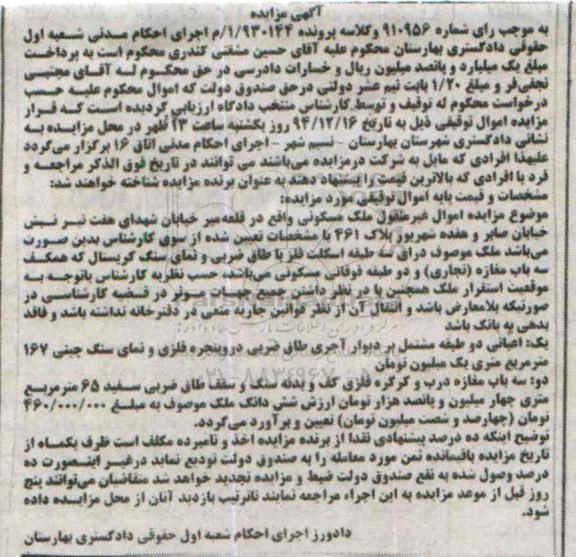 آگهی مزایده
به موجب رای شماره ۹۱۰۹۵۶ وکلاسه پرونده ۱/۹۳۰۱۴۴/م اجرای احکام مدنی شعبه اول
حقوقی دادگستری بهارستان محکوم علیه آقای حسین مشقتی کندری محکوم است به پرداخت
مبلغ یک میلیارد و پانصد میلیون ریال و خسارات دادرسی در حق محکوم له آقای مجتبی
نجفی‌فر و مبلغ ۱/۲۰ بابت نیم عشر دولتی درحق صندوق دولت که اموال محکوم علیه حسب
درخواست محکوم له توقیف و توسط کارشناس منتخب دادگاه ارزیابی گردیده است که قرار
مزایده اموال توقیفی ذیل به تاریخ ۹۴/۱۲/۱۶ روز یکشنبه ساعت ۱۳ ظهر در محل مزایده به
نشانی دادگستری شهرستان بهارستان - نسیم شهر - اجرای احکام مدنی اتاق ۱۶ برگزار می‌گردد
علیهذا افرادی که مایل به شرکت درمزایده می‌باشند می توانند در تاریخ فوق الذکر مراجعه و
فرد یا افرادی که بالاترین قیمت را پیشنهاد دهند به عنوان برنده مزایده شناخته خواهند شد:
مشخصات و قیمت پایه اموال توقیفی مورد مزایده:
موضوع مزایده اموال غیرمنقول ملک مسکونی واقع در قلعه‌میر خیابان شهدای هفت تیر نبش
خیابان صابر و هفده شهریور پلاک ۴۶۱ با مشخصات تعیین شده از سوی کارشناس بدین صورت
می‌باشد ملک موصوف درای سه طبقه اسکلت فلز با طاق ضربی و نمای سنگ کریستال که همکف
سه باب مغازه (تجاری) و دو طبقه فوقانی مسکونی می‌باشد، حسب نظریه کارشناس باتوجه به
موقعیت استقرار ملک همچنین با در نظر داشتن جمیع جهات موثر در قضیه کارشناسی در
صورتیکه بلامعارض باشد و انتقال آن از نظر قوانین جاریه منعی در دفترخانه نداشته باشد و فاقد
بدهی به بانک باشد
یک: اعیانی دو طبقه مشتمل بر دیوار آجری طاق ضربی دروپنجره فلزی و نمای سنگ چینی ۱۶۷
مترمربع متری یک میلیون تومان
دو: سه باب مغازه درب و کرکره فلزی کف و بدنه سنگ و سقف طاق ضربی سفید ۶۵ مترمربع
متری چهار میلیون و پانصد هزار تومان ارزش شش دانگ ملک موصوف به مبلغ ۴۶۰/۰۰۰/۰۰۰
تومان (چهارصد و شصت میلیون تومان) تعیین و برآورد می‌گردد.
توضیح اینکه ده درصد پیشنهادی نقدا از برنده مزایده اخذ و نامبرده مکلف است ظرف یکماه از
تاریخ مزایده باقیمانده ثمن مورد معامله را به صندوق دولت تودیع نماید درغیر اینصورت ده
درصد وصول شده به نفع صندوق دولت ضبط و مزایده تجدید خواهد شد متقاضیان می‌توانند پنج
روز قبل از موعد مزایده به این اجراء مراجعه نمایند تاترتیب بازدید آنان از محل مزایده داده
شود.
دادورز اجرای احکام شعبه اول حقوقی دادگستری بهارستان